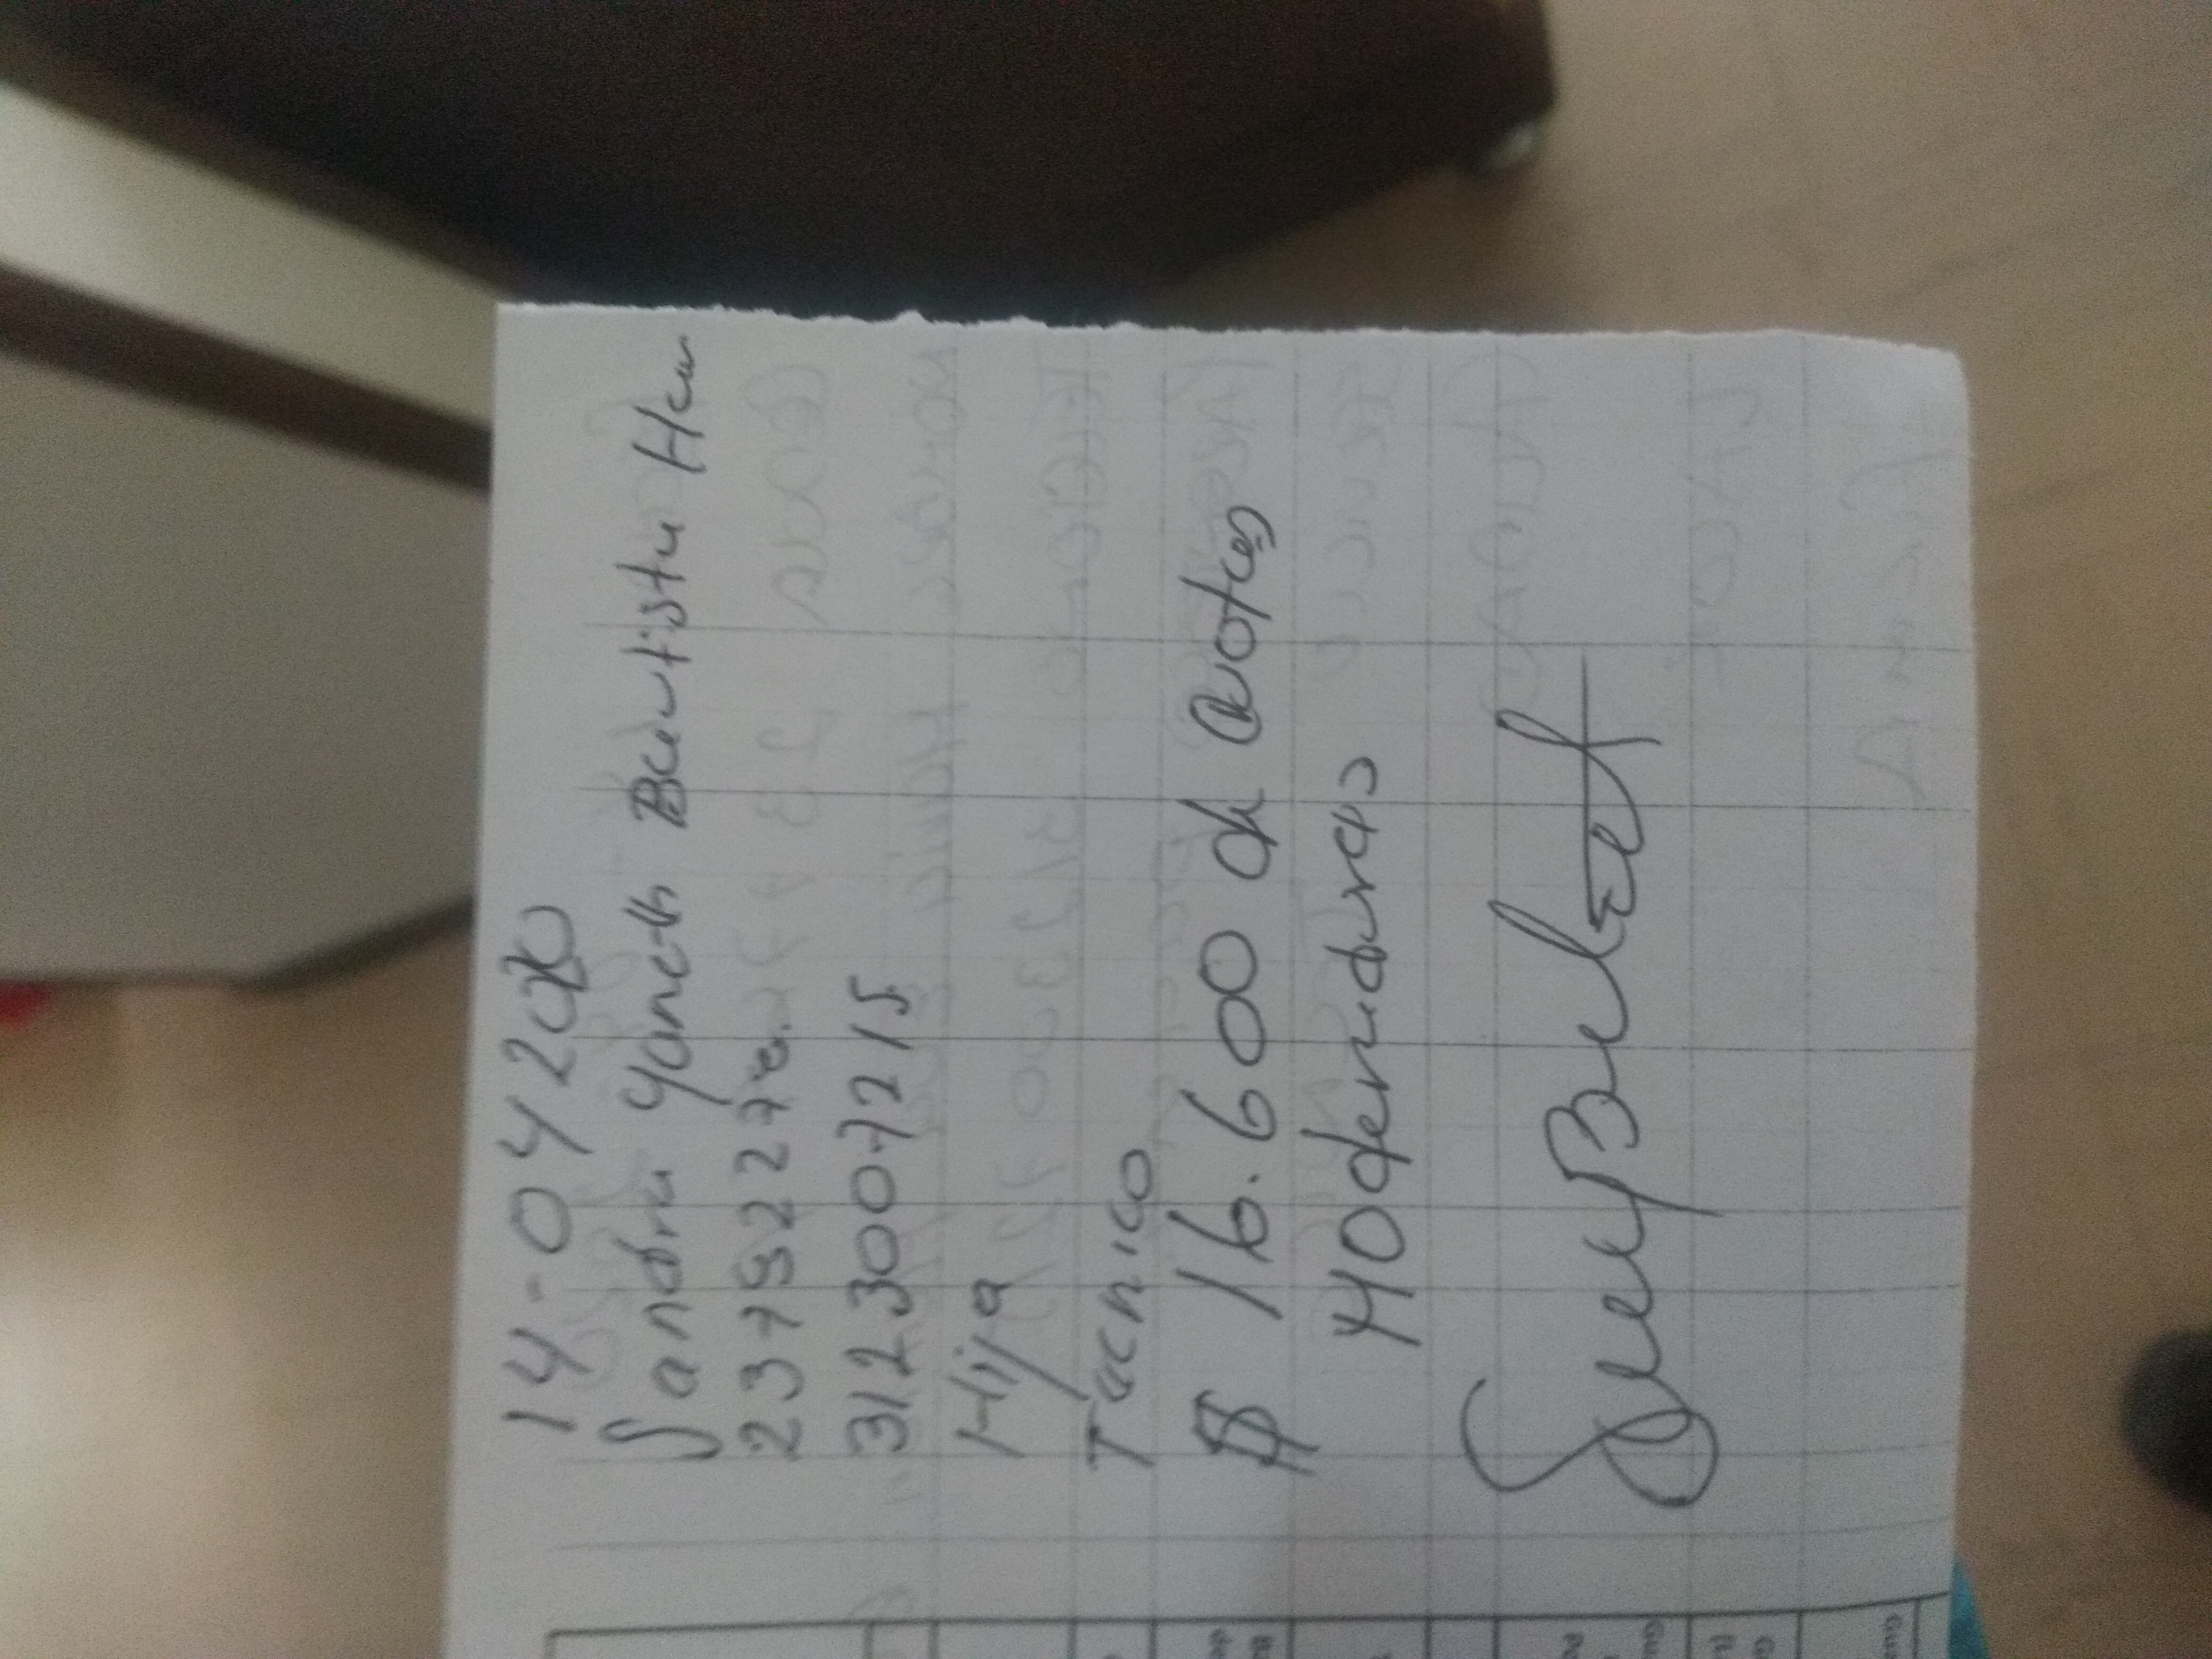 14-04 2020
Sandra Yaneth Bautista Her
23782278.
3123007215
Hija
Tecnico
$ 16.600 de cuotas
Moderadoras